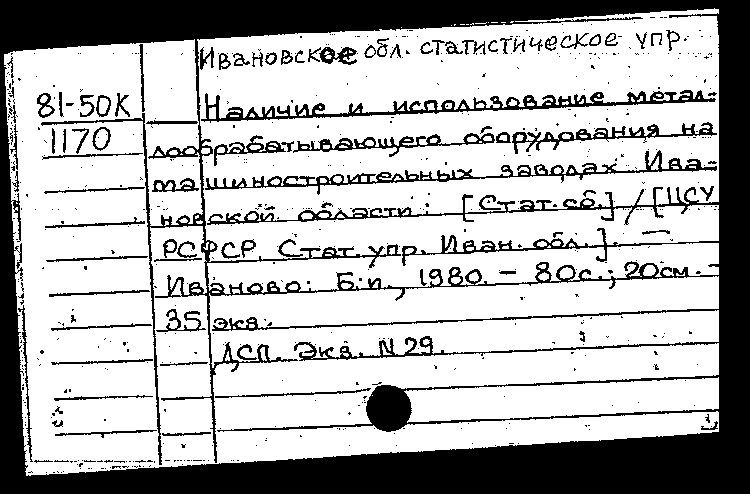 Ивановское обл. статистическое упр.
81-50К
1170
Наличие и использование метал-
лообрабатывающего оборудования на
машиностроительных заводах Ива-
новской области: [Стат. сб.] / [ЦСУ
РСФСР. Стат. упр. Иван. обл.]. —
Иваново: Б.и., 1980. – 80с.; 20см. –
35 экз.
ДСП. Экз. N 29.